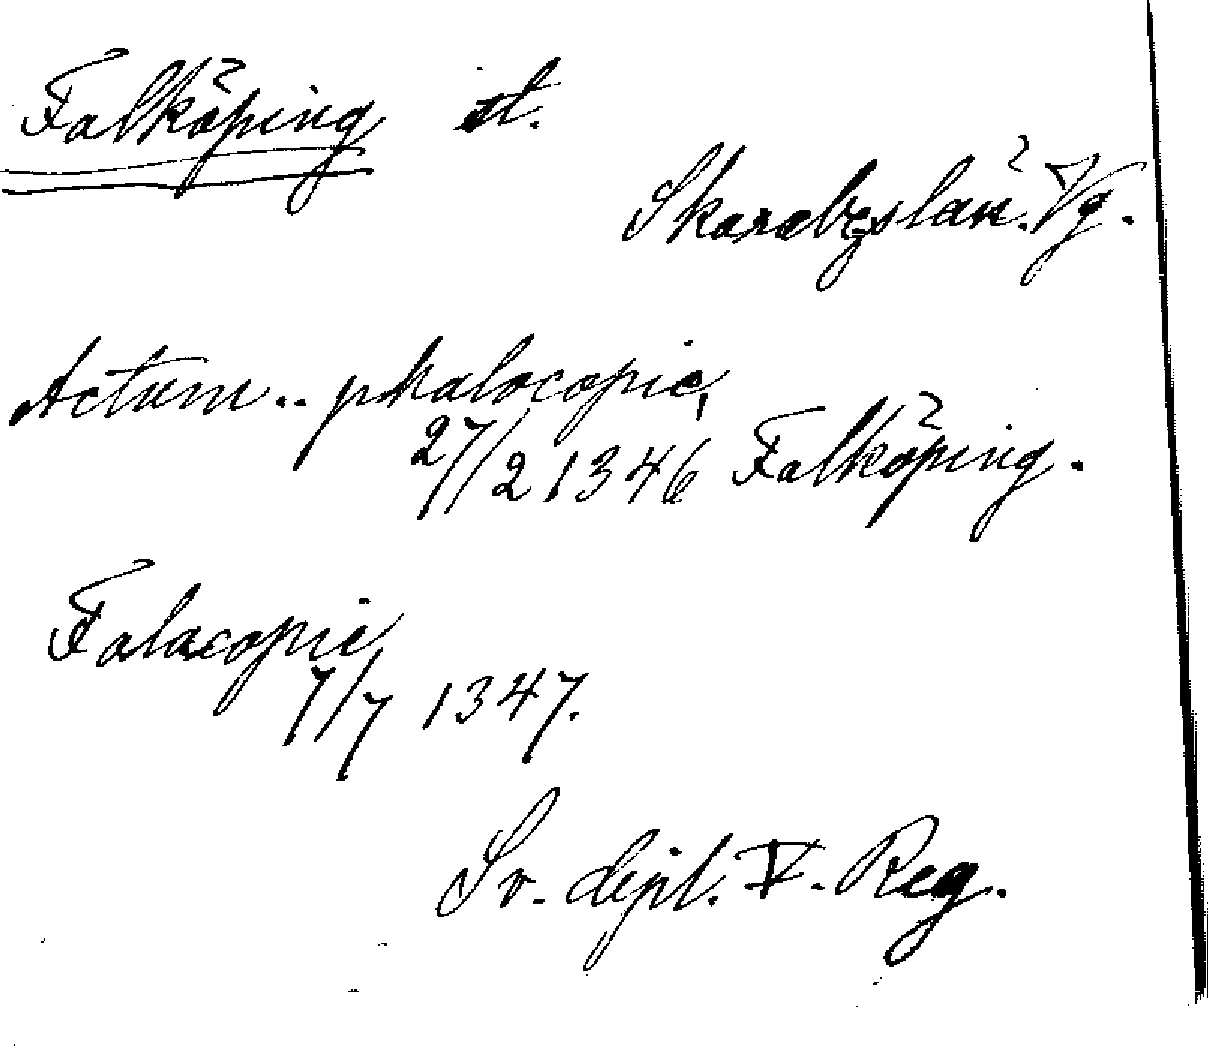 Falköping st.
Skarabgslän. Vg.
Actum .. phalocopie,
27/2 1346 Falköping.
Falacopie
7/7 1347.
Sv. dipl. V. Reg.